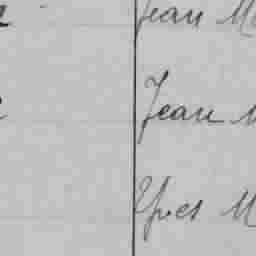 Jean M
Jean M
Yves M